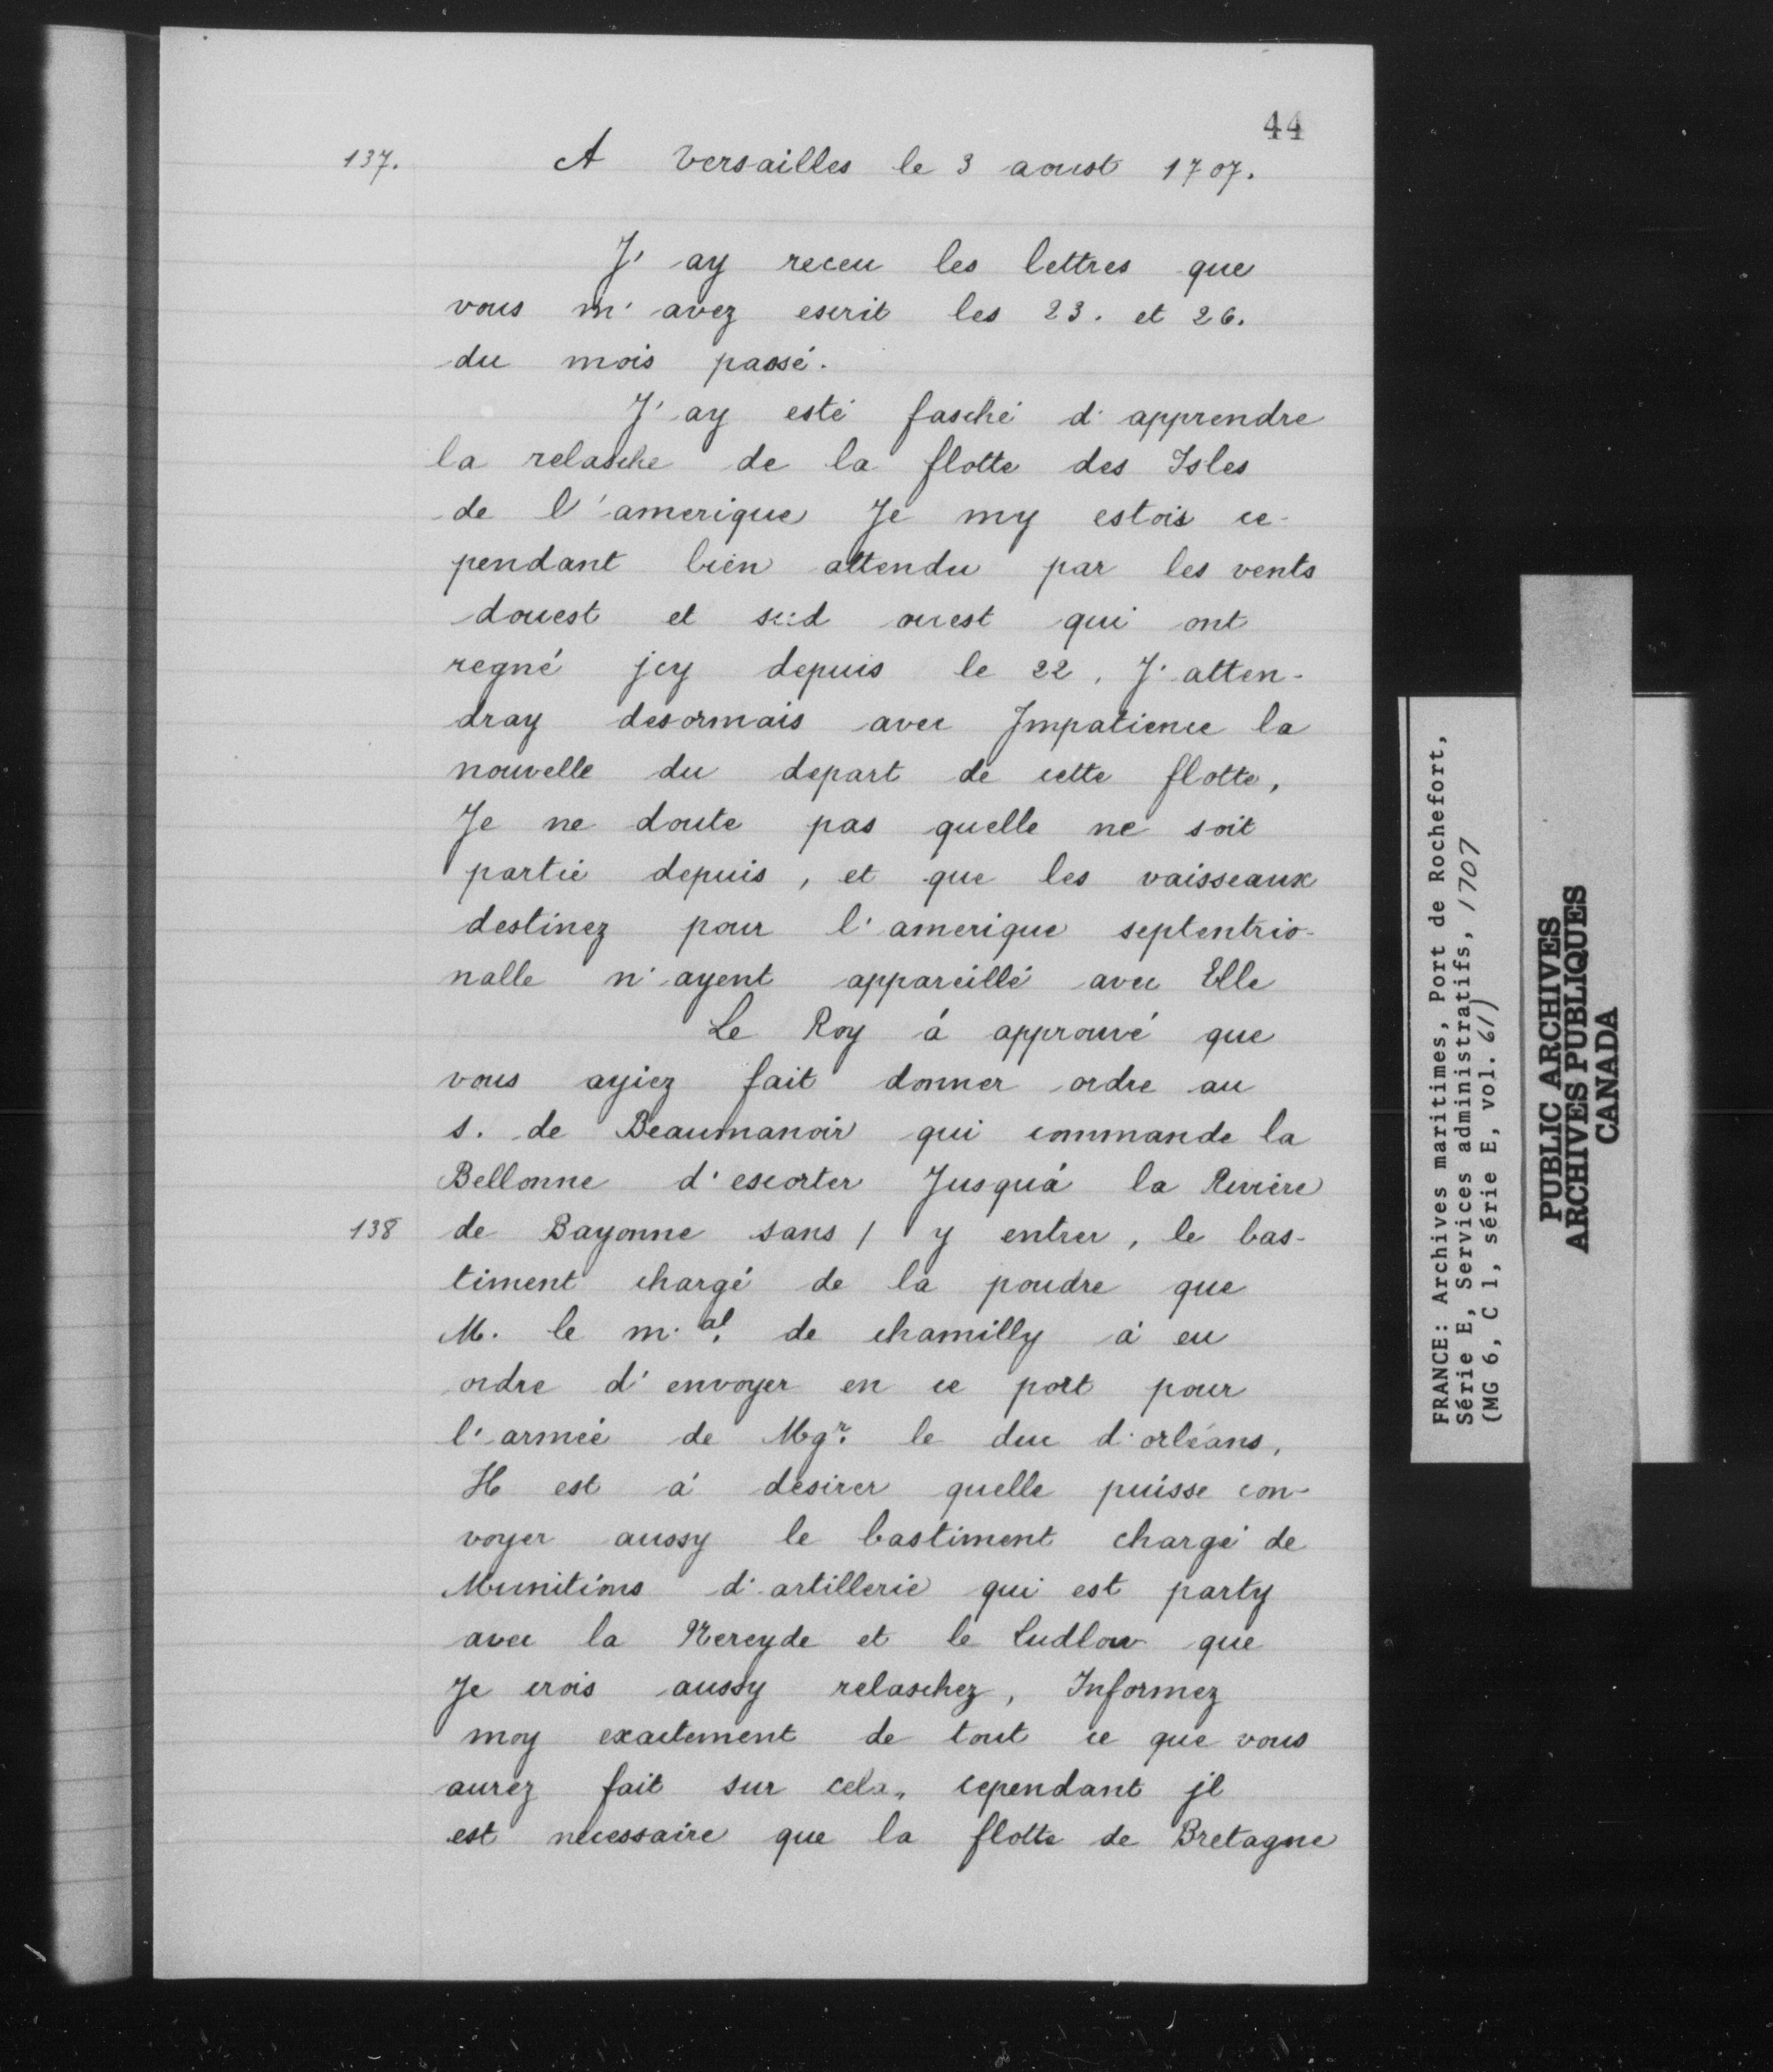 44
137. A Versailles le 3 aoust 1707.
J'ay receu les lettres que
vous m'avez escrit les 23. et 26.
du mois passé.
J'ay esté fasché d'apprendre
la relasche de la flotte des Isles
de l'amerique Je my estois ce-
pendant bien attendu par les vents
douest et sud ouest qui ont
regné jcy depuis le 22, J'atten-
dray desormais avec Jmpatience la
nouvelle du depart de cette flotte,
Je ne doute pas quelle ne soit
partie depuis, et que les vaisseaux
destinez pour l'amerique septentrio-
nalle n'ayent appareillé avec Elle
Le Roy á approuvé que
vous ayiez fait donner ordre au
s. de Beaumanoir qui commande la
Bellonne d'escorter Jusquá la Riviere
138 de Bayonne sans / y entrer, le bas-
timent chargé de la poudre que
M. le m.al. de chamilly á eu
ordre d'envoyer en ce port pour
l'armée de Mgr. le duc d'orléans,
Il est á desirer quelle puisse con-
voyer aussy le bastiment chargé de
Munitions d'artillerie qui est party
avec la Nereyde et le Ludlow que
Je crois aussy relaschez, Informez
moy exactement de tout ce que vous
aurez fait sur cela, cependant jl
est necessaire que la flotte de Bretagne
FRANCE: Archives maritimes, Port de Rochefort,
Série E, Services administratifs, 1707
(MG 6, C 1, série E, vol. 61)
PUBLIC ARCHIVES
ARCHIVES PUBLIQUES
CANADA